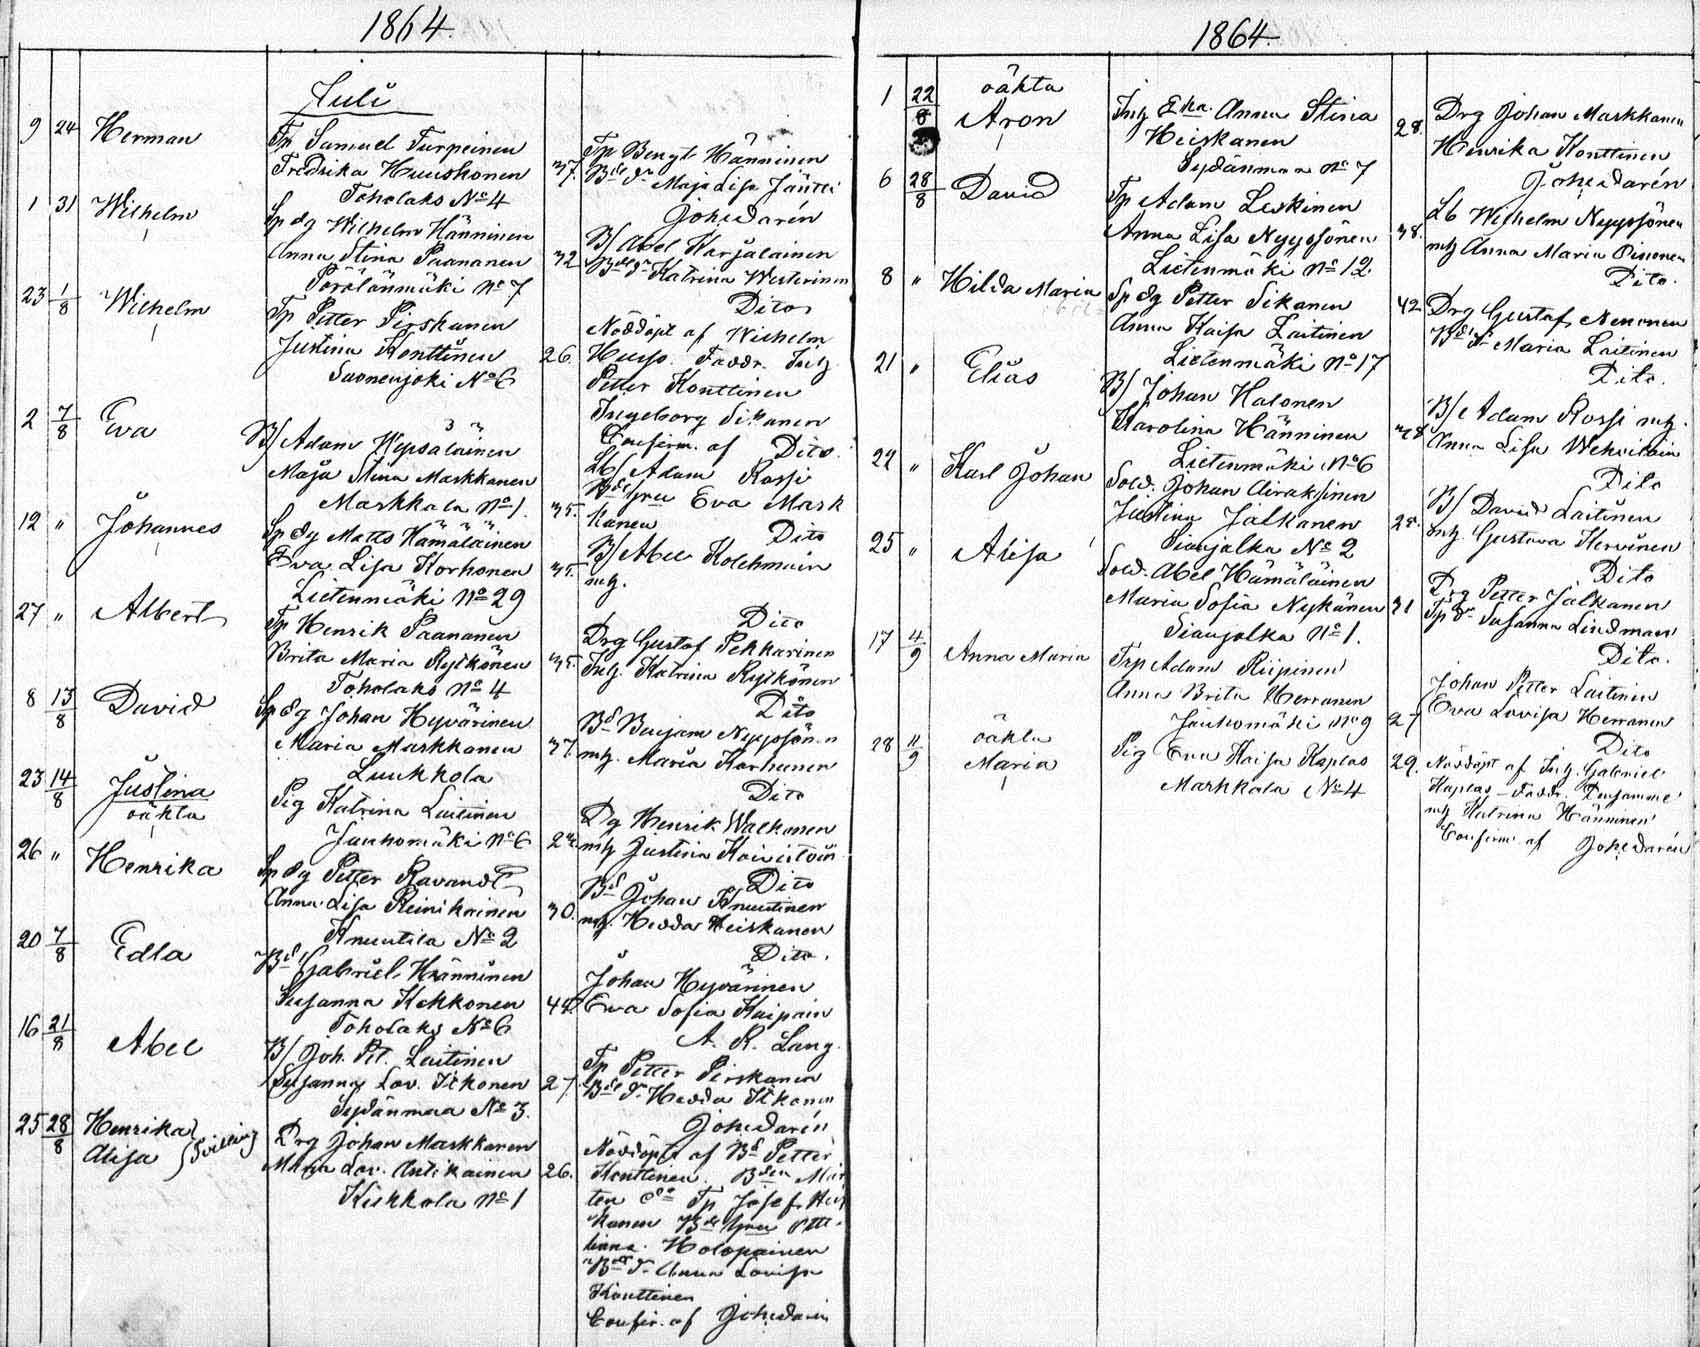 1864.
Juli
9 24 Herman
Tp Samuel Turpeinen
Fredrika Huuskonen 37.
Toholaks No 4
Tp Bengt Hänninen
Bde dr Maja Lisa Jäntti
Johs Darén
1 31 Wilhelm
Sp dg Wilhelm Hänninen
Anna Stina Paananen 32
Pörölänmäki No 7
B/ Abel Karjalainen
Bde dr Katrina Westerinen
Dito
23 1/8 Wilhelm
Tp Petter Pirskanen
Justina Konttinen 26.
Suonenjoki No 6
Nöddöpt af Wilhelm
Husso. Faddr. Inh
Petter Konttinen
Ingeborg Sikanen
Confirm. af Dito.
2 7/8 Eva
B/ Adam Hypsälainen
Maja Stina Markkanen
Markkala No 1. 35.
Lb/ Adam Rossi
Bde hru Eva Mark
kanen Dito
12 " Johannes
Sp dg Matts Hämäläinen
Eva Lisa Korhonen 35.
Lietenmäki No 29
B/ Abel Kolehmain
mh.
Dito
27 " Albert
Tp Henrik Paananen
Brita Maria Rytkönen 35.
Toholaks No 4
Drg Gustaf Pekkarinen
Inh. Katrina Rytkönen
Dito
8 13/8 David
Sp dg Johan Hyvärinen
Maria Markkanen 37.
Luukkola
Bd Benjam Nyyssönen
mh. Maria Korhonen
Dito
23 14/8 Justina
oäkta
Pig Katrina Laitinen
Jauhomäki No 6
Dg Henrik Walkonen
mh Justina Koivistoin
Dito
26 " Henrika
Sp dg Petter Ravandt
Anna Lisa Reinikainen 30.
Knuutila No 2
Bd Johan Knuutinen
mh. Hedda Heiskanen
Dito.
20 7/8 Edla
Bd Gabriel Hänninen
Susanna Kekkonen
Toholaks No 6
Johan Hyvärinen
Eva Sofia Kaipain
A. R. Lang.
16 21/8 Abel
B/ Joh. Pet. Laitinen
Susanna Lov. Itkonen 27.
Sydänmaa No 3.
Tp Petter Pirskanen
Bde dr Hedda Itkonen
Johs Darén
25 28/8 Henrika
Alisa } Tvilling
Drg Johan Markkanen
Maria Lov. Antikainen 26.
Kukkola No 1
Nöddöpt af Bd Petter
Konttinen. Bden Mår
ten do Tp Josef Huts
kanen Bde hru Otti
liana Holopainen
Bde dr Anna Lovisa
Konttinen
Confir. af Johs Darén
1864.
1 22/8 oäkta
Aron
Inh Eka. Anna Stina
Heiskanen 28.
Sydänmaa No 7
Drg Johan Markkanen
Henrika Konttinen
Johs Darén
6 28/8 David
Tp Adam Leskinen
Anna Lisa Nyyssönen 38.
Lietenmäki No 12.
Lb Wilhelm Nyyssönen
mh Anna Maria Pinonen
Dito.
8 " Hilda Maria
Sp dg Petter Sikanen 42
Anna Kaisa Laitinen
Lietenmäki No 17
Drg Gustaf Nenonen
Bde dr Maria Laitinen
Dito.
21 " Elias
B/ Johan Halonen
Karolina Hänninen
Lietenmäki No 6
B/ Adam Rossi mh.
Anna Lisa Wehviläin
Dito
22 " Karl Johan
Sold. Johan Airaksinen
Justina Jalkanen
Sianjalka No 2
B/ David Laitinen
mh. Gustava Hervinen
Dito
25 " Alisa
Sold. Abel Hämäläinen
Maria Sofia Nykänen 31
Sianjalka No 1.
Drg Petter Jalkanen
Tp dr Susanna Lindman
Dito.
17 4/9 Anna Maria
Tsp Adam Riipinen
Anna Brita Herranen
Jauhomäki No 9 27
Johan Petter Laitinen
Eva Lovisa Herranen
Dito
28 11/9 oäkta
Maria
Pig Eva Kaisa Kaplas 29.
Markkala No 4
Nöddöpt af Inh. Gabriel
Kaplas Faddr. Densamme
mh Katrina Hänninen
Confirm. af Johs Darén